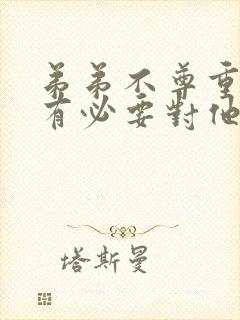 弟弟不尊重
有必要對他
塔斯曼